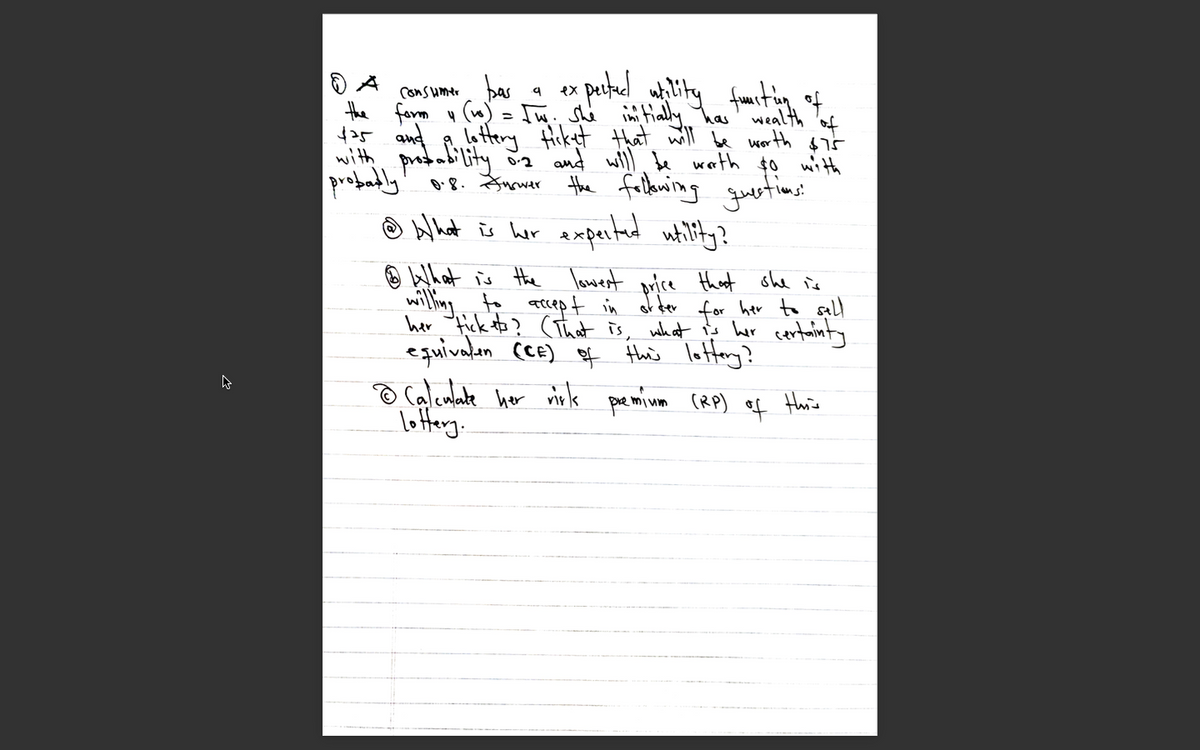 ① A consumer has a expected utility function of
the form u(w) = √w. She initially has wealth of
$25 and a lottery ticket that will be worth $75
with probability 0.2 and will be worth $0 with
probably 0.8. Answer the following questions:
ⓐ What is her expected utility?
ⓑ What is the lowest price that she is
willing to accept in order for her to sell
her tickets? (That is, what is her certainty
equivalen (CE) of this lottery?
ⓒ Calculate her risk premium (RP) of this
lottery.